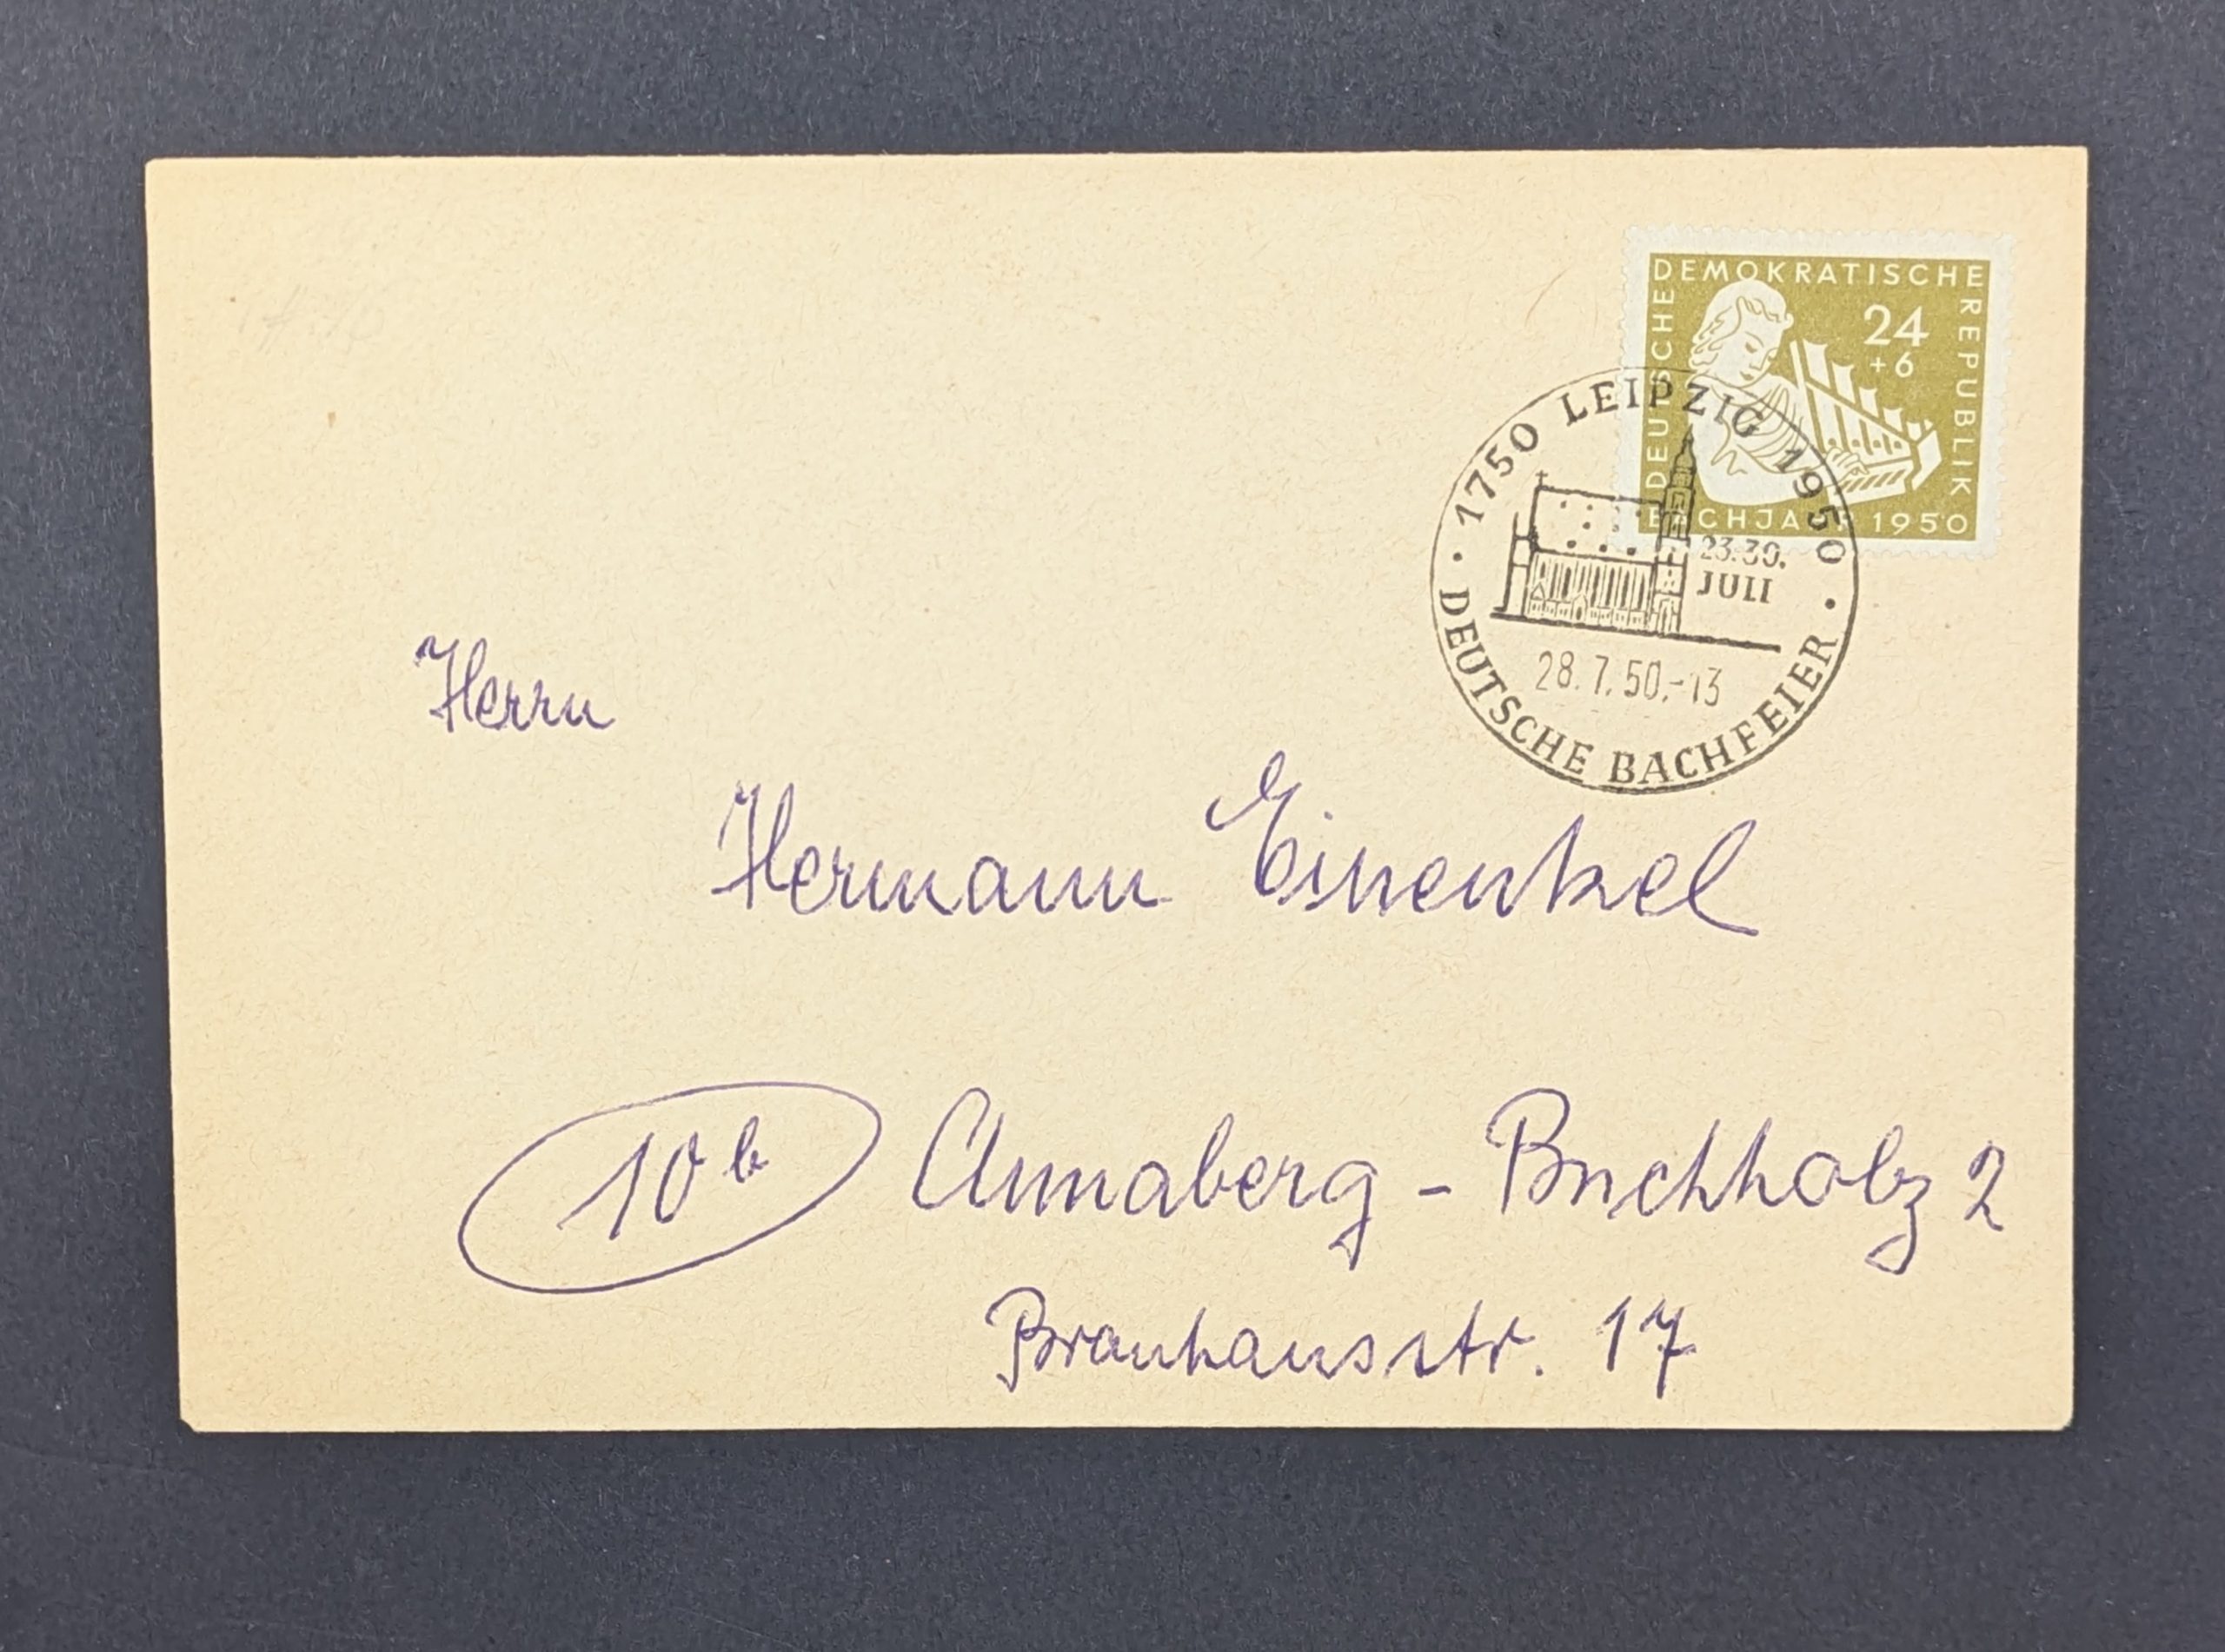 DEUTSCHE DEMOKRATISCHE REPUBLIK
24
+6
BACHJAHR 1950
· 1750 LEIPZIG 1950 ·
23.-30.
JULI
28.7.50.-13
DEUTSCHE BACHFEIER
Herrn
Hermann Einenkel
10b Annaberg - Buchholz 2
Brauhausstr. 17